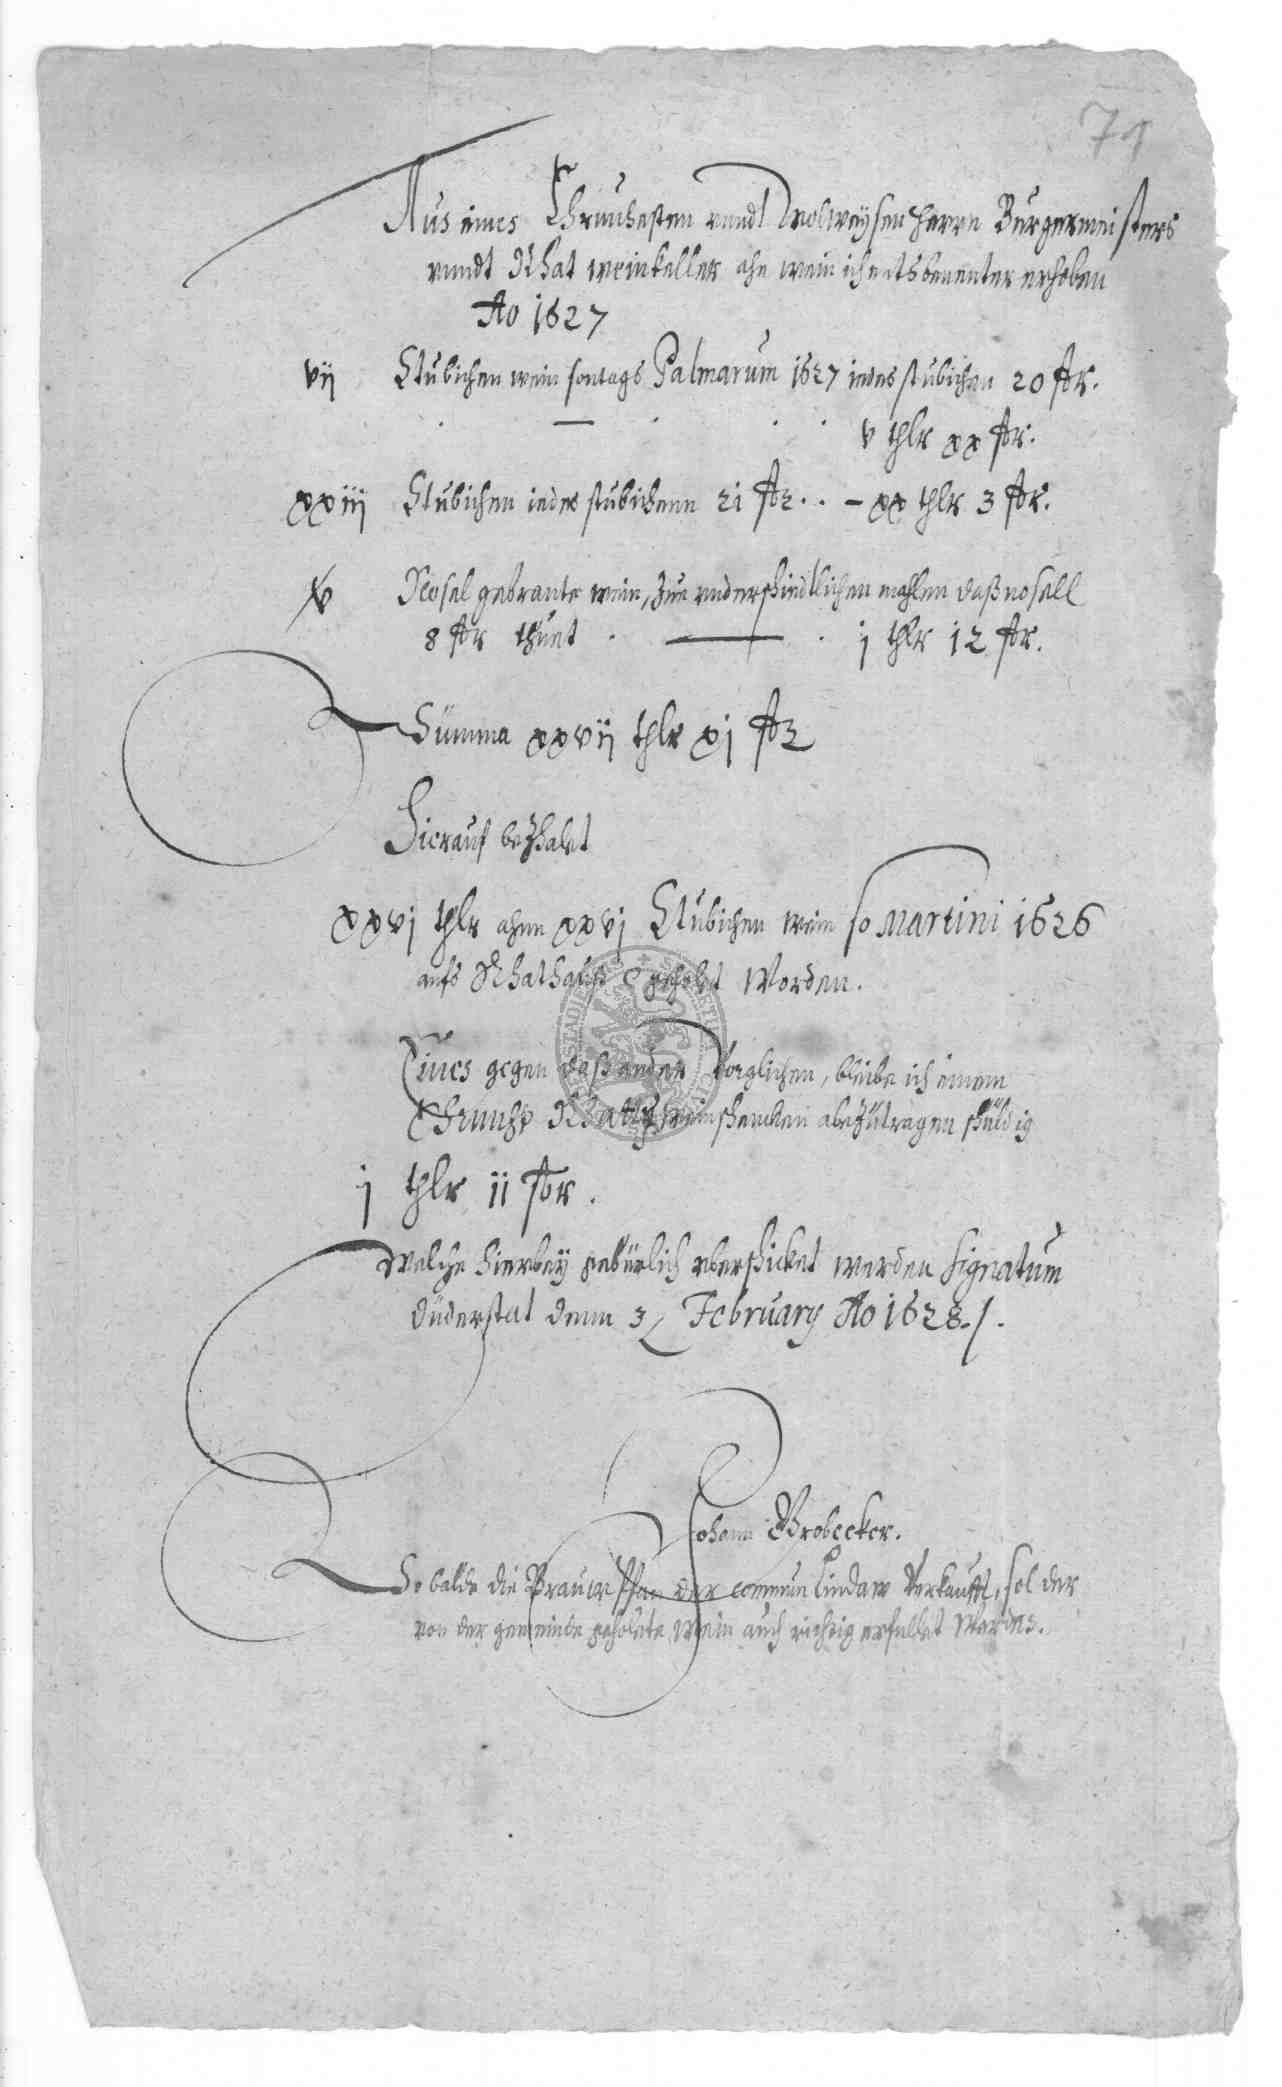 79
Aus eines Ehrnuhesten vundt Wolweysen Herrn Burgermeisters
vundt Rhat weinkeller ahn wein ich entsbenenter erhoben
Ao 1627
vij Stubichen wein sontags Palmarum 1627 iedes stubichen 20 gr.
v thlr xx gr.
xxiij Stubichen iedes stubichenn 21 gr. . – xx thlr 3 gr.
v Nosel gebrante wein, zue vnderschiedtlichen mahlen daß nosell
8 gr thuet . — . j thlr 12 gr.
Summa xxvij thlr xj gr
Hierauf bezhalet
xxvj thlr ahnn xxvj Stubichen wein so Martini 1626
aufs Rhathauß geholet Worden.
Eines gegen daß ander Vorglichen, bleibe ich einem
Ehrnuh Rhatts weinschencken abezutragen schuldig
j thlr ii gr.
Welche hierbeÿ gebürlich vberschicket werden Signatum
Duderstat denn 3 February Ao 1628./.
Johann Brobecker.
So balde die Brauw Pfan der commun Lindaw Verkaufft, sol der
von der gemeinde geholete wein auch richtig erfullet Werden.
STADTARCHIV DUDERSTADT